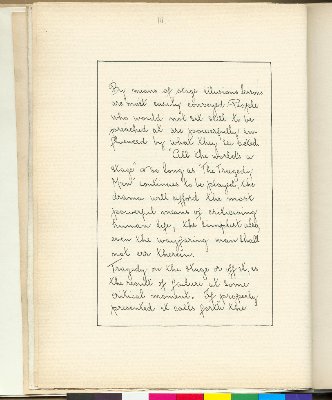 By means of stage illusions lessons
are most easily conveyed. People
who would not sit still to be
preached at are powerfully in-
fluenced by what they see acted.
"All the world's a
stage" & so long as "The Tragedy
Man" continues to be played the
drama will afford the most
powerful means of
human life, the simplest
even the wayfaring man shall
not err therein.
Tragedy on the stage or off it, is
the result of failure at some
critical moment. If properly
presented it calls forth the